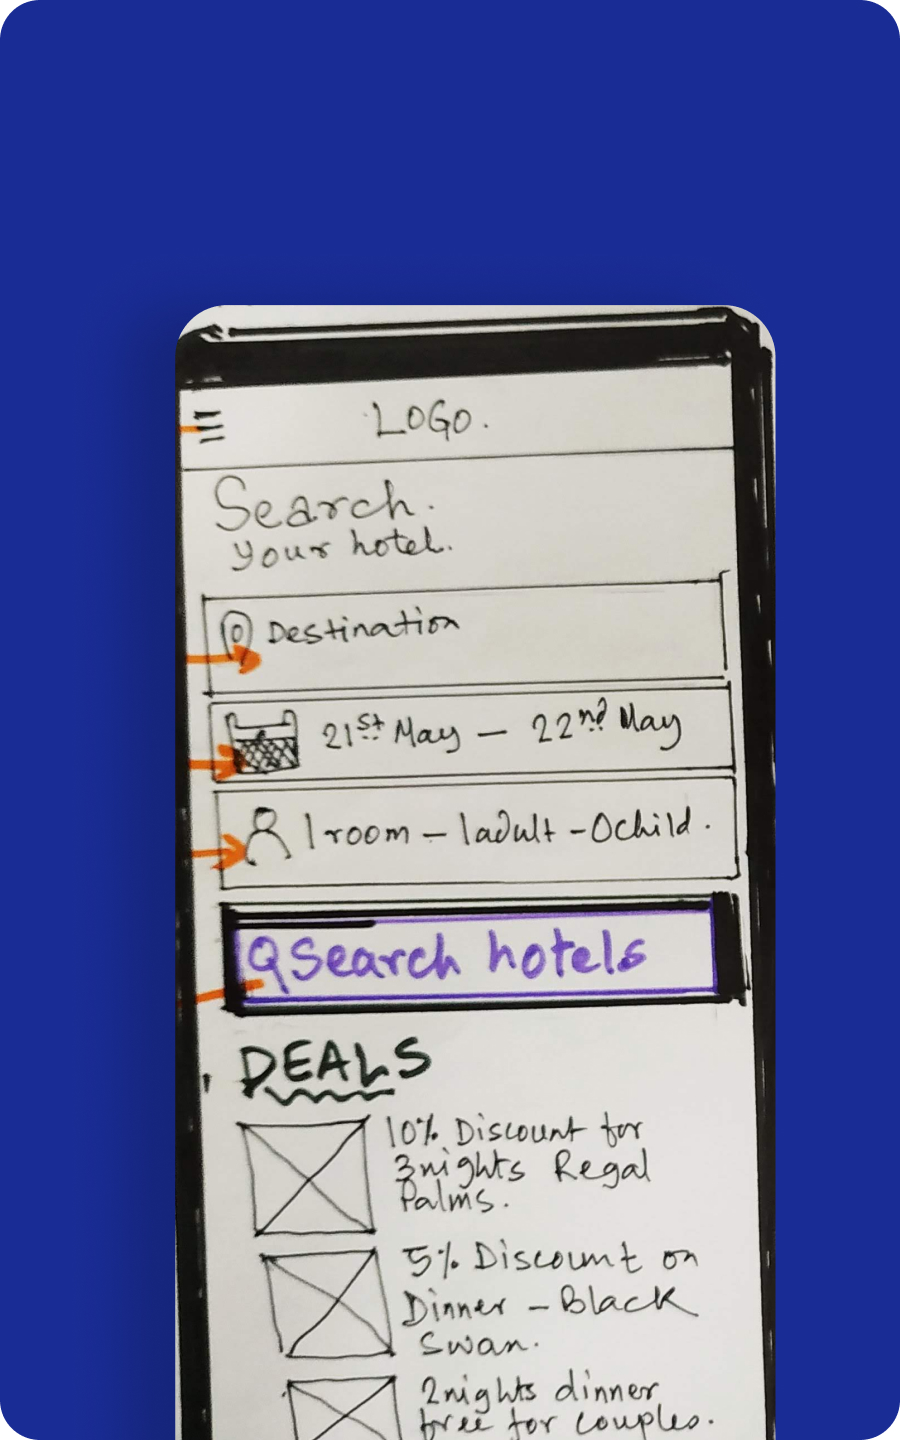 LOGO.
Search.
your hotel.
Destination
21st May – 22nd May
1 room – 1adult – 0child.
Search hotels
DEALS
10% Discount for
3nights Regal
Palms.
5% Discount on
Dinner – Black
Swan.
2nights dinner
free for couples.